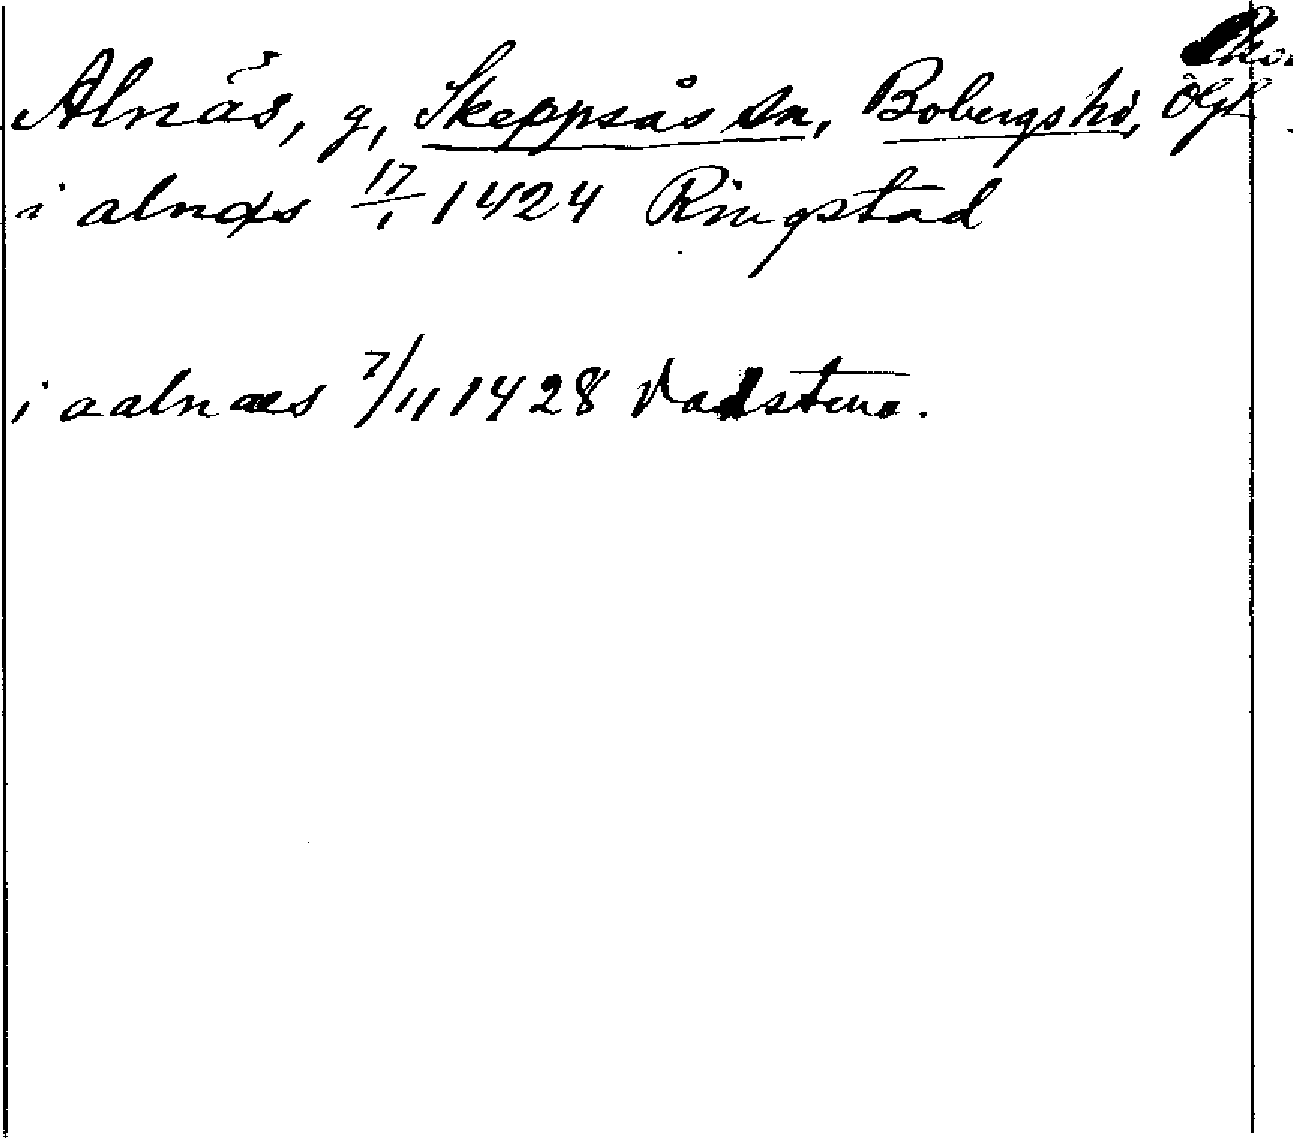 Alnäs, g, Skeppsås sn, Bobergs hd, Ögl
i alnæs 17/1 1424 Ringstad
i aalnæs 7/11 1428 Vadstena.